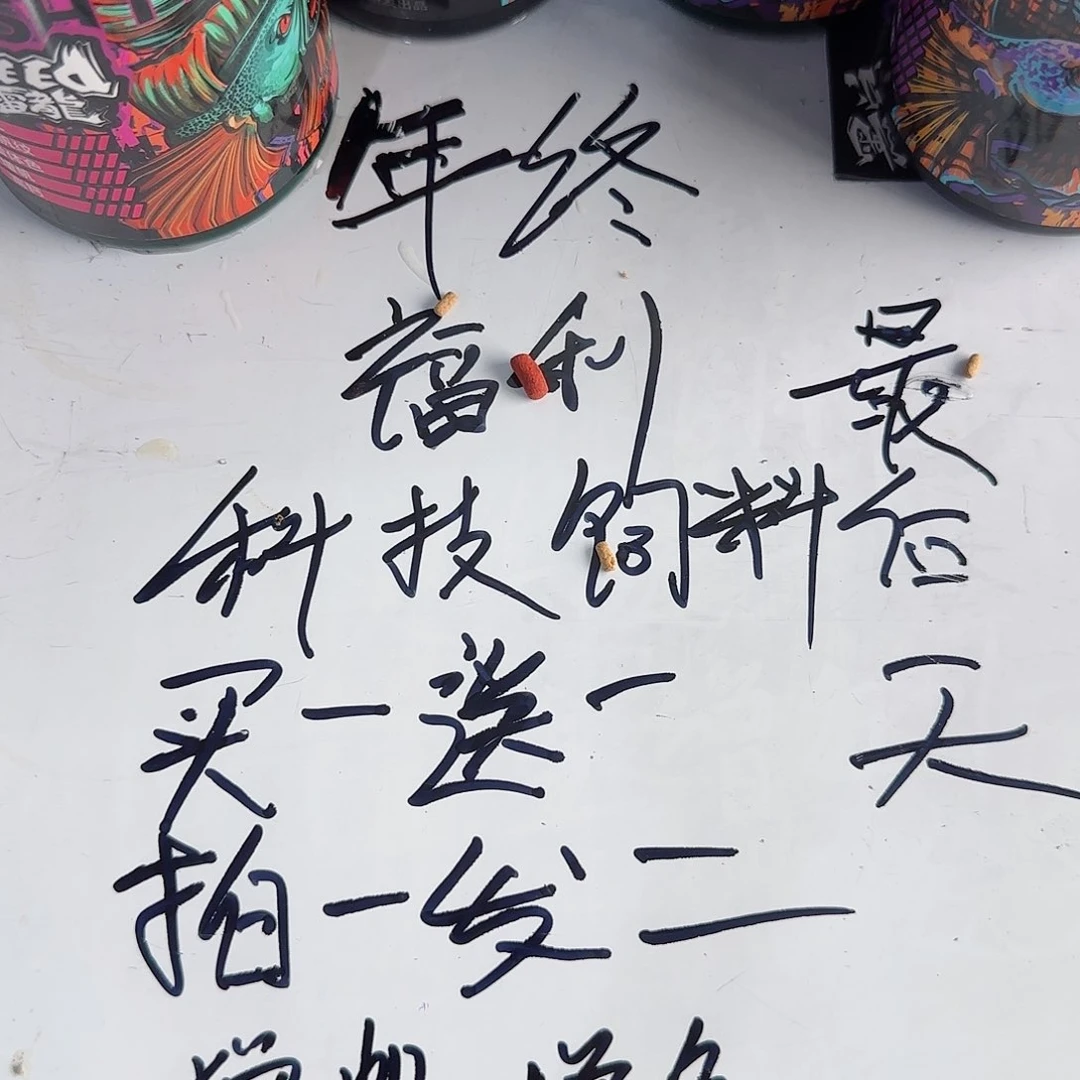 年终
福利
科技饲料
买一送一
拍一发二
最后一天